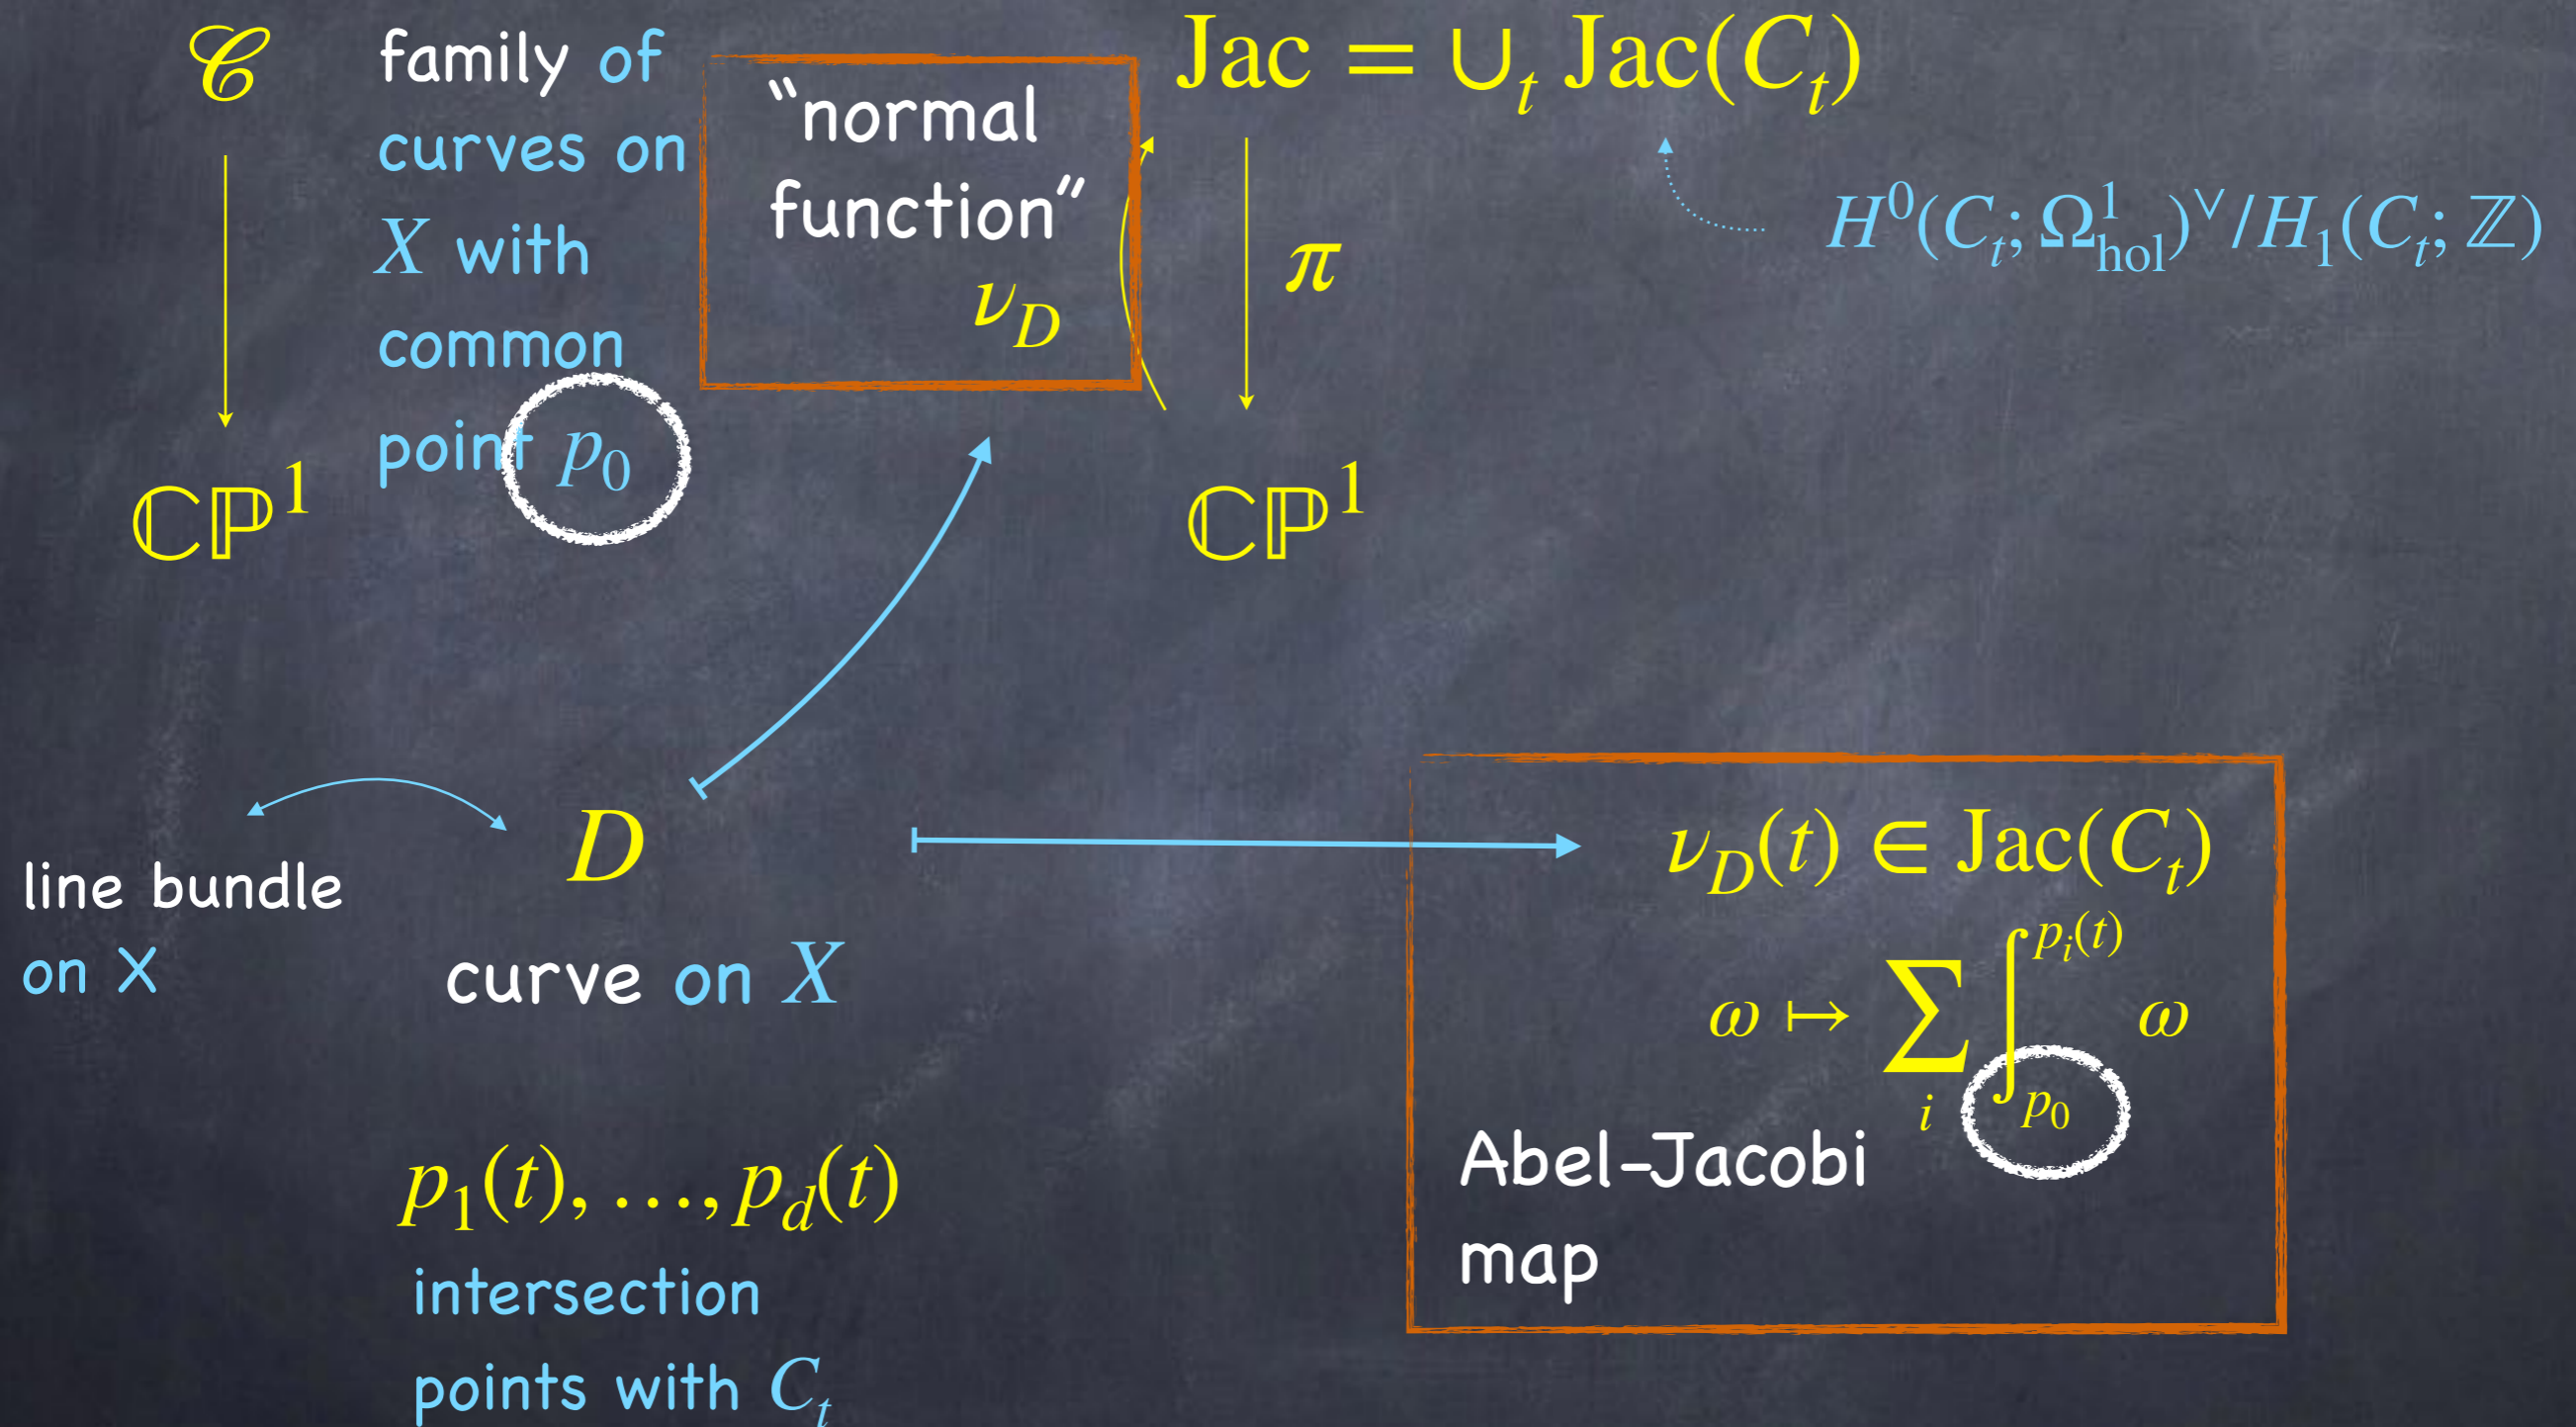 𝒞
family of
curves on
X with
common
point p₀
ℂℙ¹
“normal
function”
ν_D
Jac = ∪ₜ Jac(Cₜ)
π
H⁰(Cₜ; Ω¹_hol)^∨/H₁(Cₜ; ℤ)
ℂℙ¹
line bundle
on X
D
curve on X
p₁(t), …, p_d(t)
intersection
points with Cₜ
ν_D(t) ∈ Jac(Cₜ)
ω ↦ ∑_i ∫_{p₀}^{p_i(t)} ω
Abel-Jacobi
map